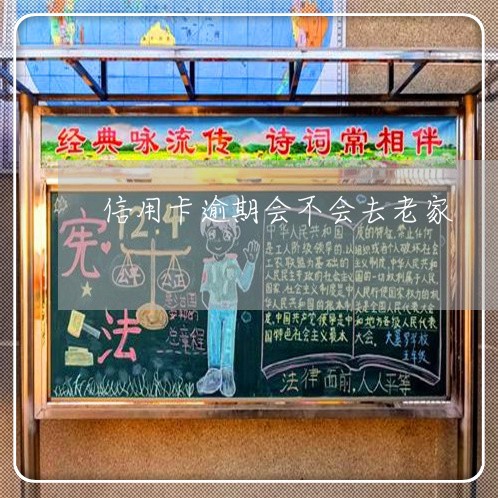 经典咏流传 诗词常相伴
信用卡逾期会不会去老家
宪法
12.4
公平 公正
总章程
中华人民共和国
是工人阶级领导的,以
工农联盟为基础的
人民民主专政的社会主义
国家,社会主义制度是中
华人民共和国的根本制
度,中国共产党领导是中
国特色社会主义最本
质的特征,禁止任何
组织或者个人破坏社会
主义制度,中华人民共和
国的一切权利属于人民,
人民行使国家权力的机
关是全国人民代表大会
和地方各级人民代表
大会。
五年级
法律面前,人人平等